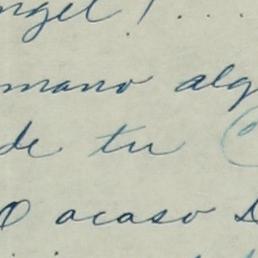 ngel! . . .
mano alg
de tu C
O acaso D